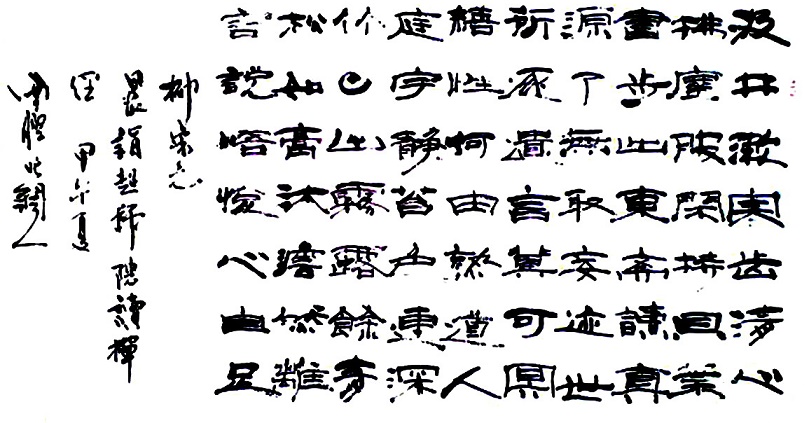 汲井漱寒齒清心
拂塵服閒持貝葉
書步出東齋讀真
源了無取妄迹世
所逐遺言冀可冥
繕性何由熟道人
庭宇靜苔色連深
竹日出霧露餘青
松如膏沐澹然離
言說悟悅心自足
柳宗元
晨詣超師院讀禪
經 甲午夏
人